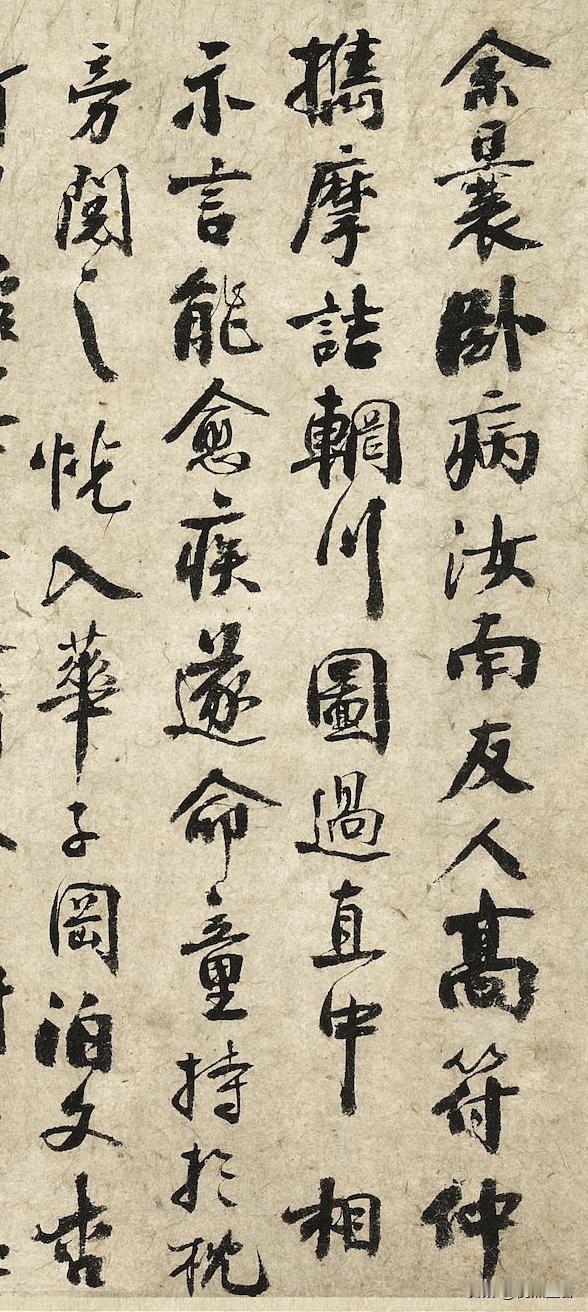 余曩卧病汝南友人髙符仲
攜摩詰輞川圖過直中相
示言能愈疾遂命童持於枕
旁閱之恍入華子岡泊文杏